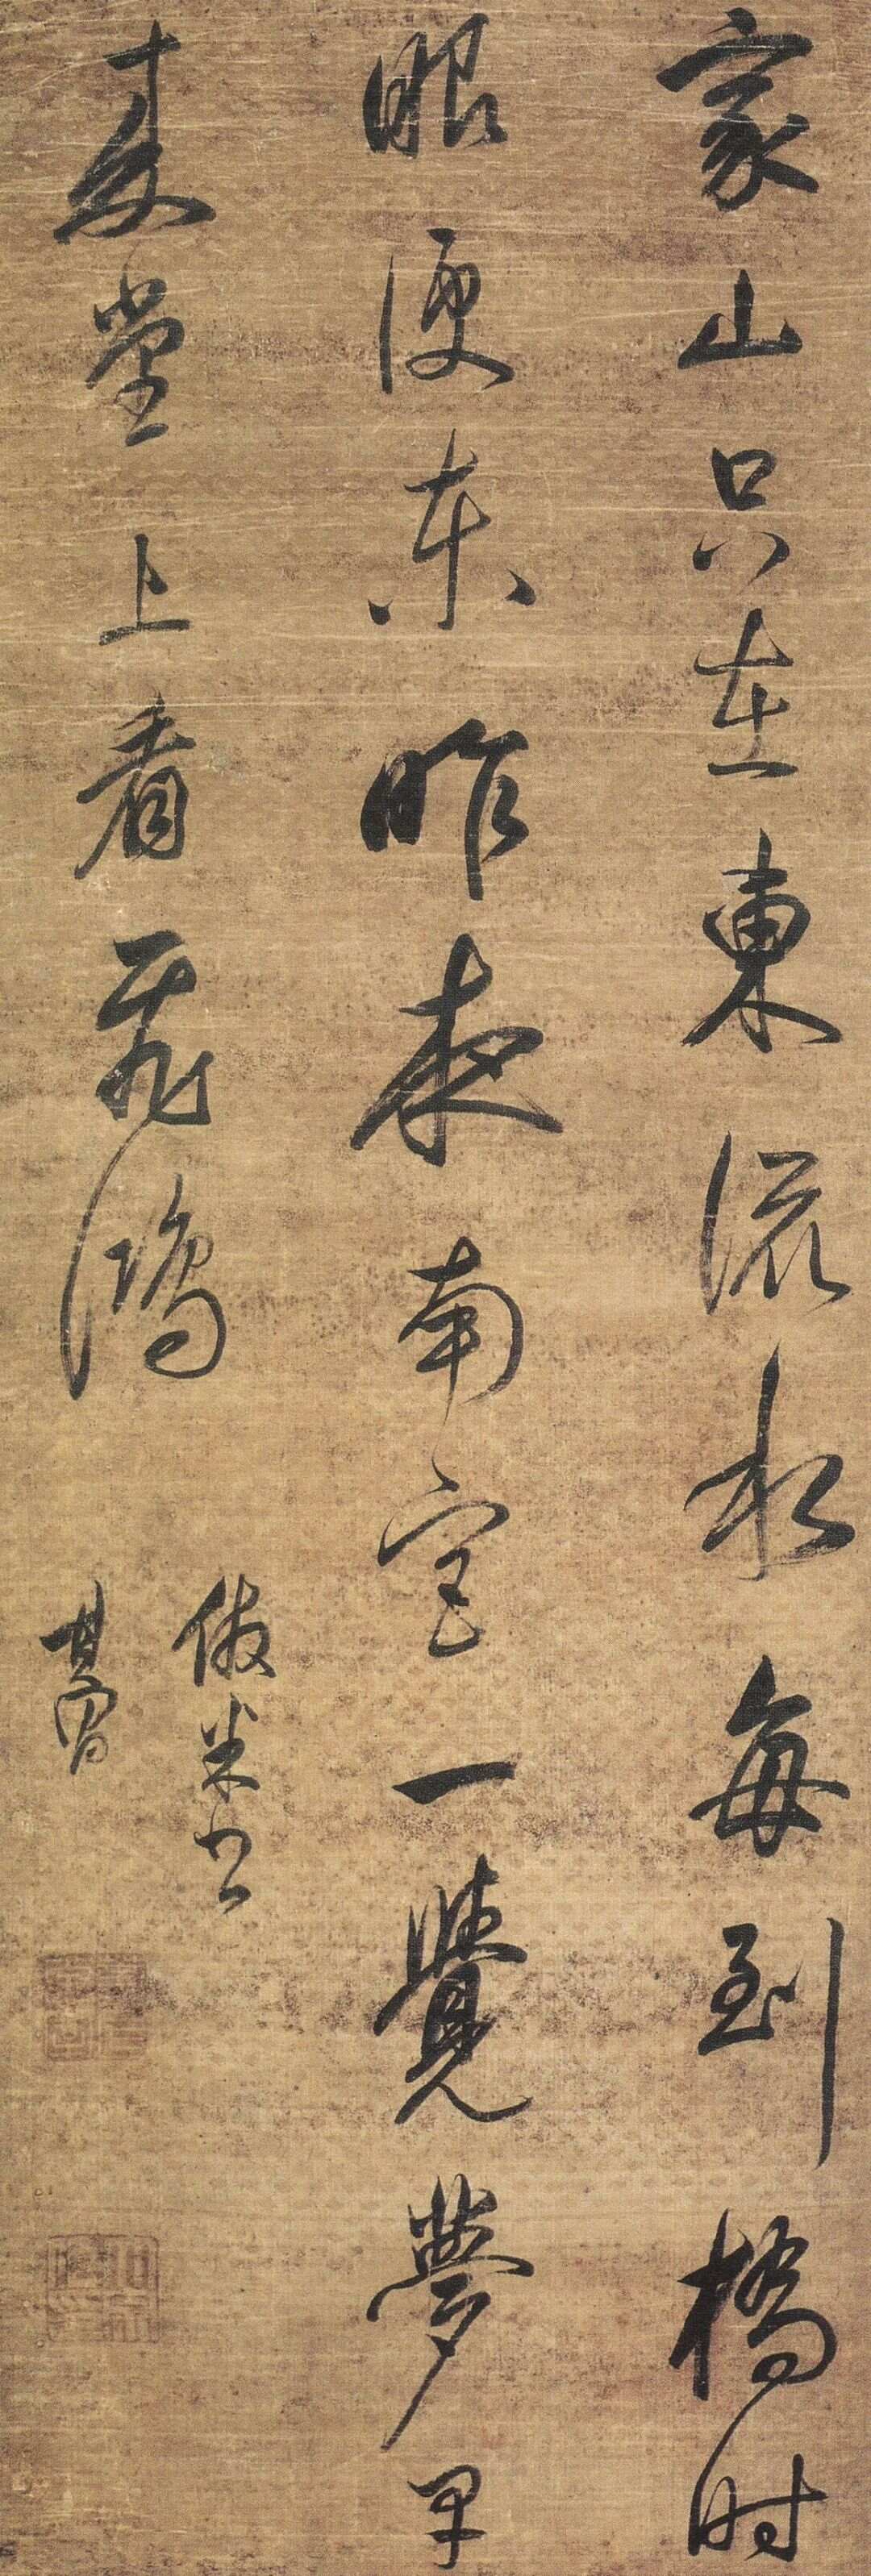 家山只在東流水每到橋时
眼便东昨夜南一覺夢平
夷堂上看飛鴻
倣米书
其昌